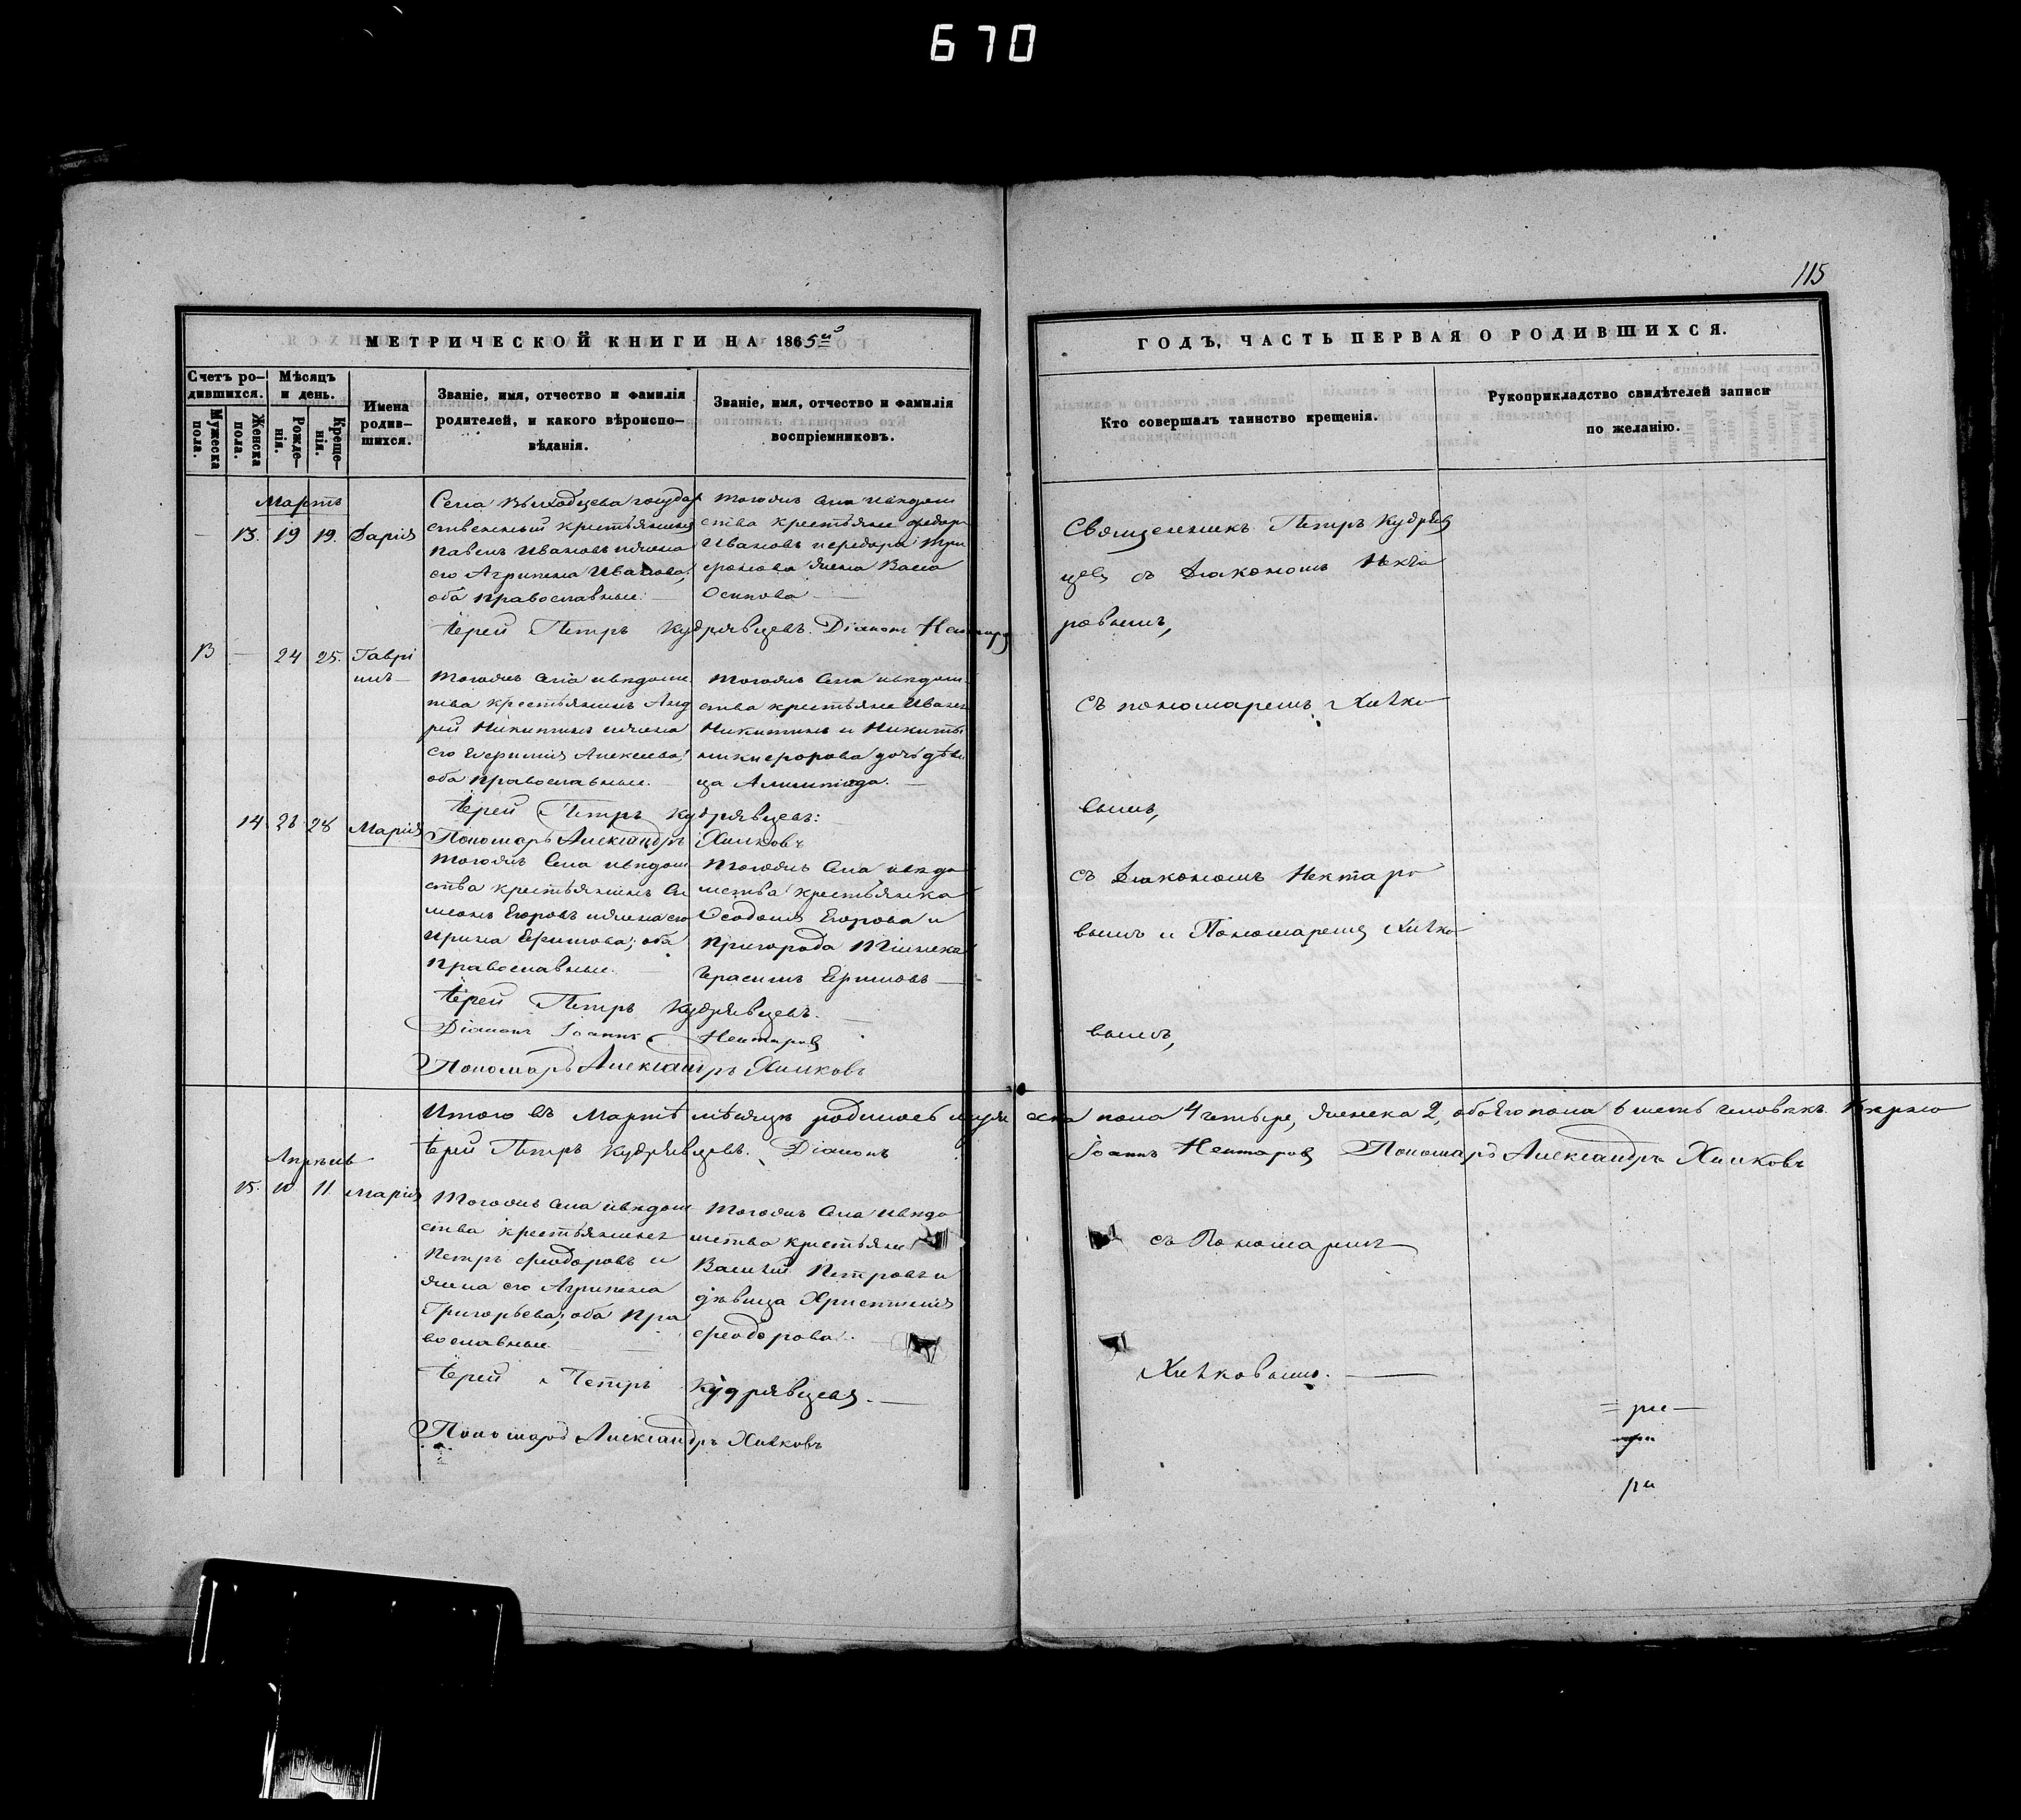 670
115
МЕТРИЧЕСКОЙ КНИГИ НА 1865й
ГОДЪ, ЧАСТЬ ПЕРВАЯ О РОДИВШИХСЯ.
Счетъ ро-
дившихся.
Мужеска пола.
Женска пола.
Мѣсяцъ
и день.
Рожде-
нія.
Креще-
нія.
Имена
родив-
шихся.
Званіе, имя, отчество и фамилія
родителей, и какого вѣроиспо-
вѣданія.
Званіе, имя, отчество и фамилія
воспріемниковъ.
Кто совершалъ таинство крещенія.
Рукоприкладство свидѣтелей записи
по желанію.
Мартъ
13. 19 19. Дарія
Села государ
ственный крестьянинъ
Павелъ Ивановъ и жена
его Агрипена Иванова,
оба православные.
тогожъ села и вѣдом
ства крестьяне Федоръ
Ивановъ и Федора Три
фонова жена Васса
Осипова
Священникъ Петръ Кудряв
цевъ съ Діакономъ Некта
ровымъ,
Іерей Петръ Кудрявцевъ. Діаконъ
13 — 24 25. Гаврі
илъ
тогожъ села и вѣдом
ства крестьянинъ Анд
рей Никитинъ и жена
его Евфимія Алексеева,
оба православные.
тогожъ села и вѣдом
ства крестьяне Иванъ
Никитинъ и Никиты
Никифорова дочь дѣви
ца
съ пономаремъ Хилко
вымъ,
Іерей Петръ Кудрявцевъ:
Пономарь Александръ Хилковъ
14 28 28 Марія
тогожъ села и вѣдом
ства крестьянинъ Си
меонъ Егоровъ и жена его
Ирина Ефимова, оба
православные.
тогожъ села и вѣдо
мства крестьянка
Феодосія Егорова и
пригорода
Герасимъ
съ Діакономъ Нектаро
вымъ и Пономаремъ Хилко
вымъ,
Іерей Петръ Кудрявцевъ.
Діаконъ Іоаннъ Нектаровъ
Пономарь Александръ Хилковъ
Итого въ Мартѣ мѣсяцѣ родилось муже ска пола 4 четыре, женска 2, обоего пола 6 шесть человѣкъ.
Іерей Петръ Кудрявцевъ. Діаконъ Іоаннъ Нектаровъ Пономарь Александръ Хилковъ
Апрѣль
15. 10 11 Марія
тогожъ села и вѣдом
ства крестьянинъ
Петръ Феодоровъ и
жена его Агрипена
Григорьева, оба пра
вославные.
тогожъ села и вѣдо
мства крестьяни
Василій Петровъ и
дѣвица Христинія
Феодорова.
съ Пономаремъ
Хилковымъ.
Іерей Петръ Кудрявцевъ.
Пономарь Александръ Хилковъ